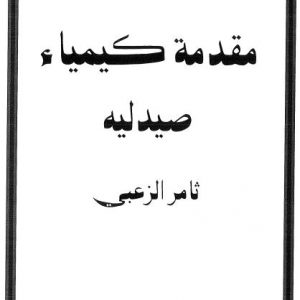 مقدمة كيمياء
صيدليه
ثامر الزعبي